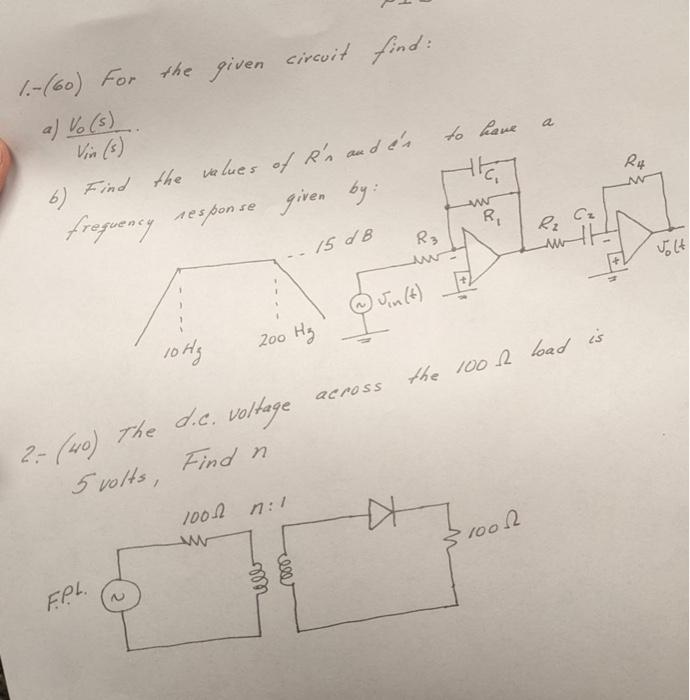 1.-(60) For the given circuit find:
a) Vo(s)
Vin(s)
b) Find the values of R's and C's to have a
frequency response given by:
15 dB
10 Hz
200 Hz
R3
C1
R1
R2
C2
R4
Vin(t)
Vo(t
2.- (40) The d.c. voltage across the 100 Ω load is
5 volts, Find n
100Ω n:1
100 Ω
F.P.L.